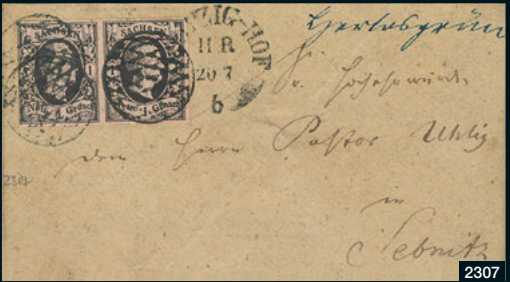 SACHSEN SACHSEN
Neu- 1 Grosch. Neu- 1 Grosch.
ZIG-HOF
II R
20 7
6
Herlasgrün
Sr. Hochehrwürden
dem Herrn Pastor Uhlig
in
Sebnitz
2307
2307